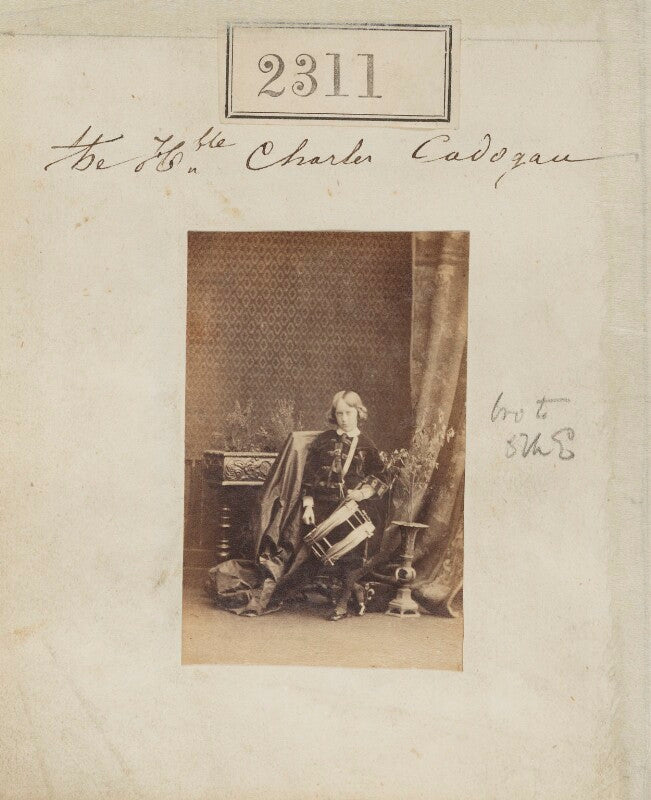 2311
the Honble Charles Cadogan
bro to
5th E